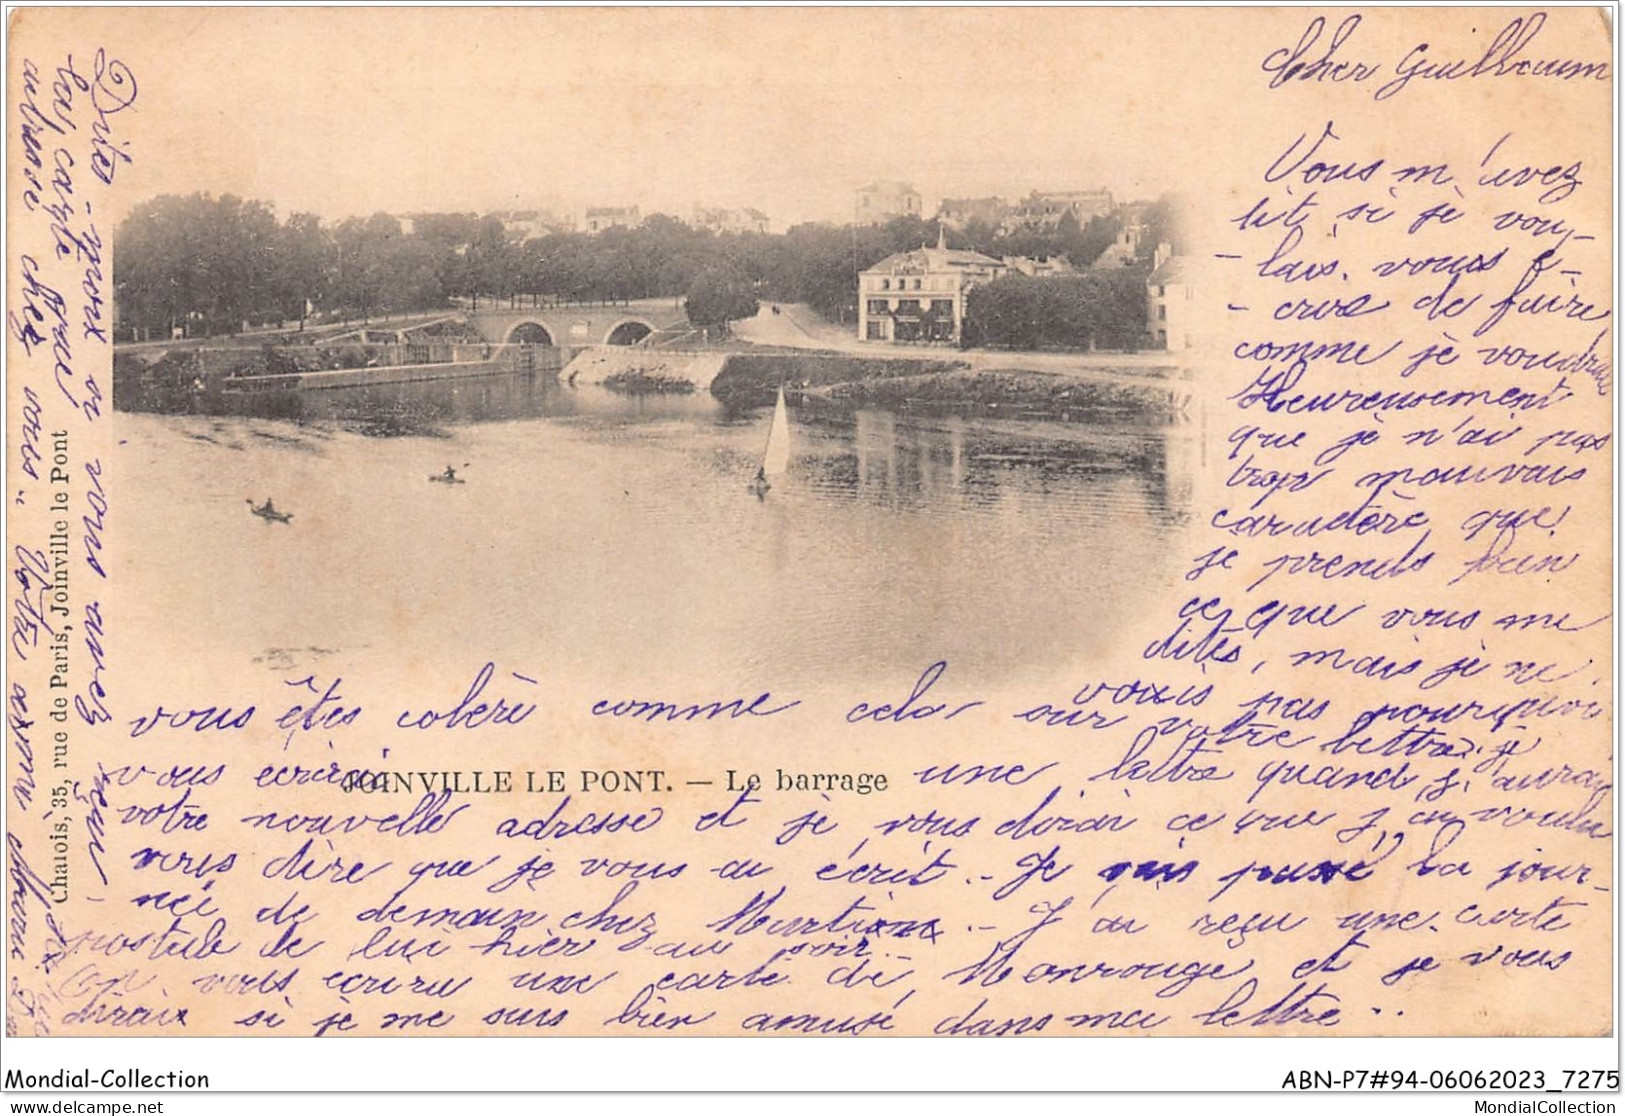 Cher Guilhaum
Vous m'avez
dit si je vou-
- lais vous é-
- crire de faire
comme je voudrais
Heureusement
que je n'ai pas
trop mauvais
caractère que
je prends bien
ce que vous me
dites, mais je ne
vois pas pourquoi
vous êtes colère comme cela sur votre lettre. je
vous écrirai une lettre quand j'aurai
votre nouvelle adresse et je vous dirai ce que j'ai voulu
vous dire que je vous ai écrit. - Je vais passé la jour-
- née de demain chez - J'ai reçu une carte
postale de lui hier au soir.
On vous écrira une carte de Monrouge et je vous
dirais si je me suis bien amusé dans ma lettre..
Dites-moi si vous avez reçu
les carte que j'ai
adressé chez vous. Votre
JOINVILLE LE PONT. — Le barrage
35, rue de Paris, Joinville le Pont
Mondial-Collection
ABN-P7#94-06062023_7275
MondialCollection